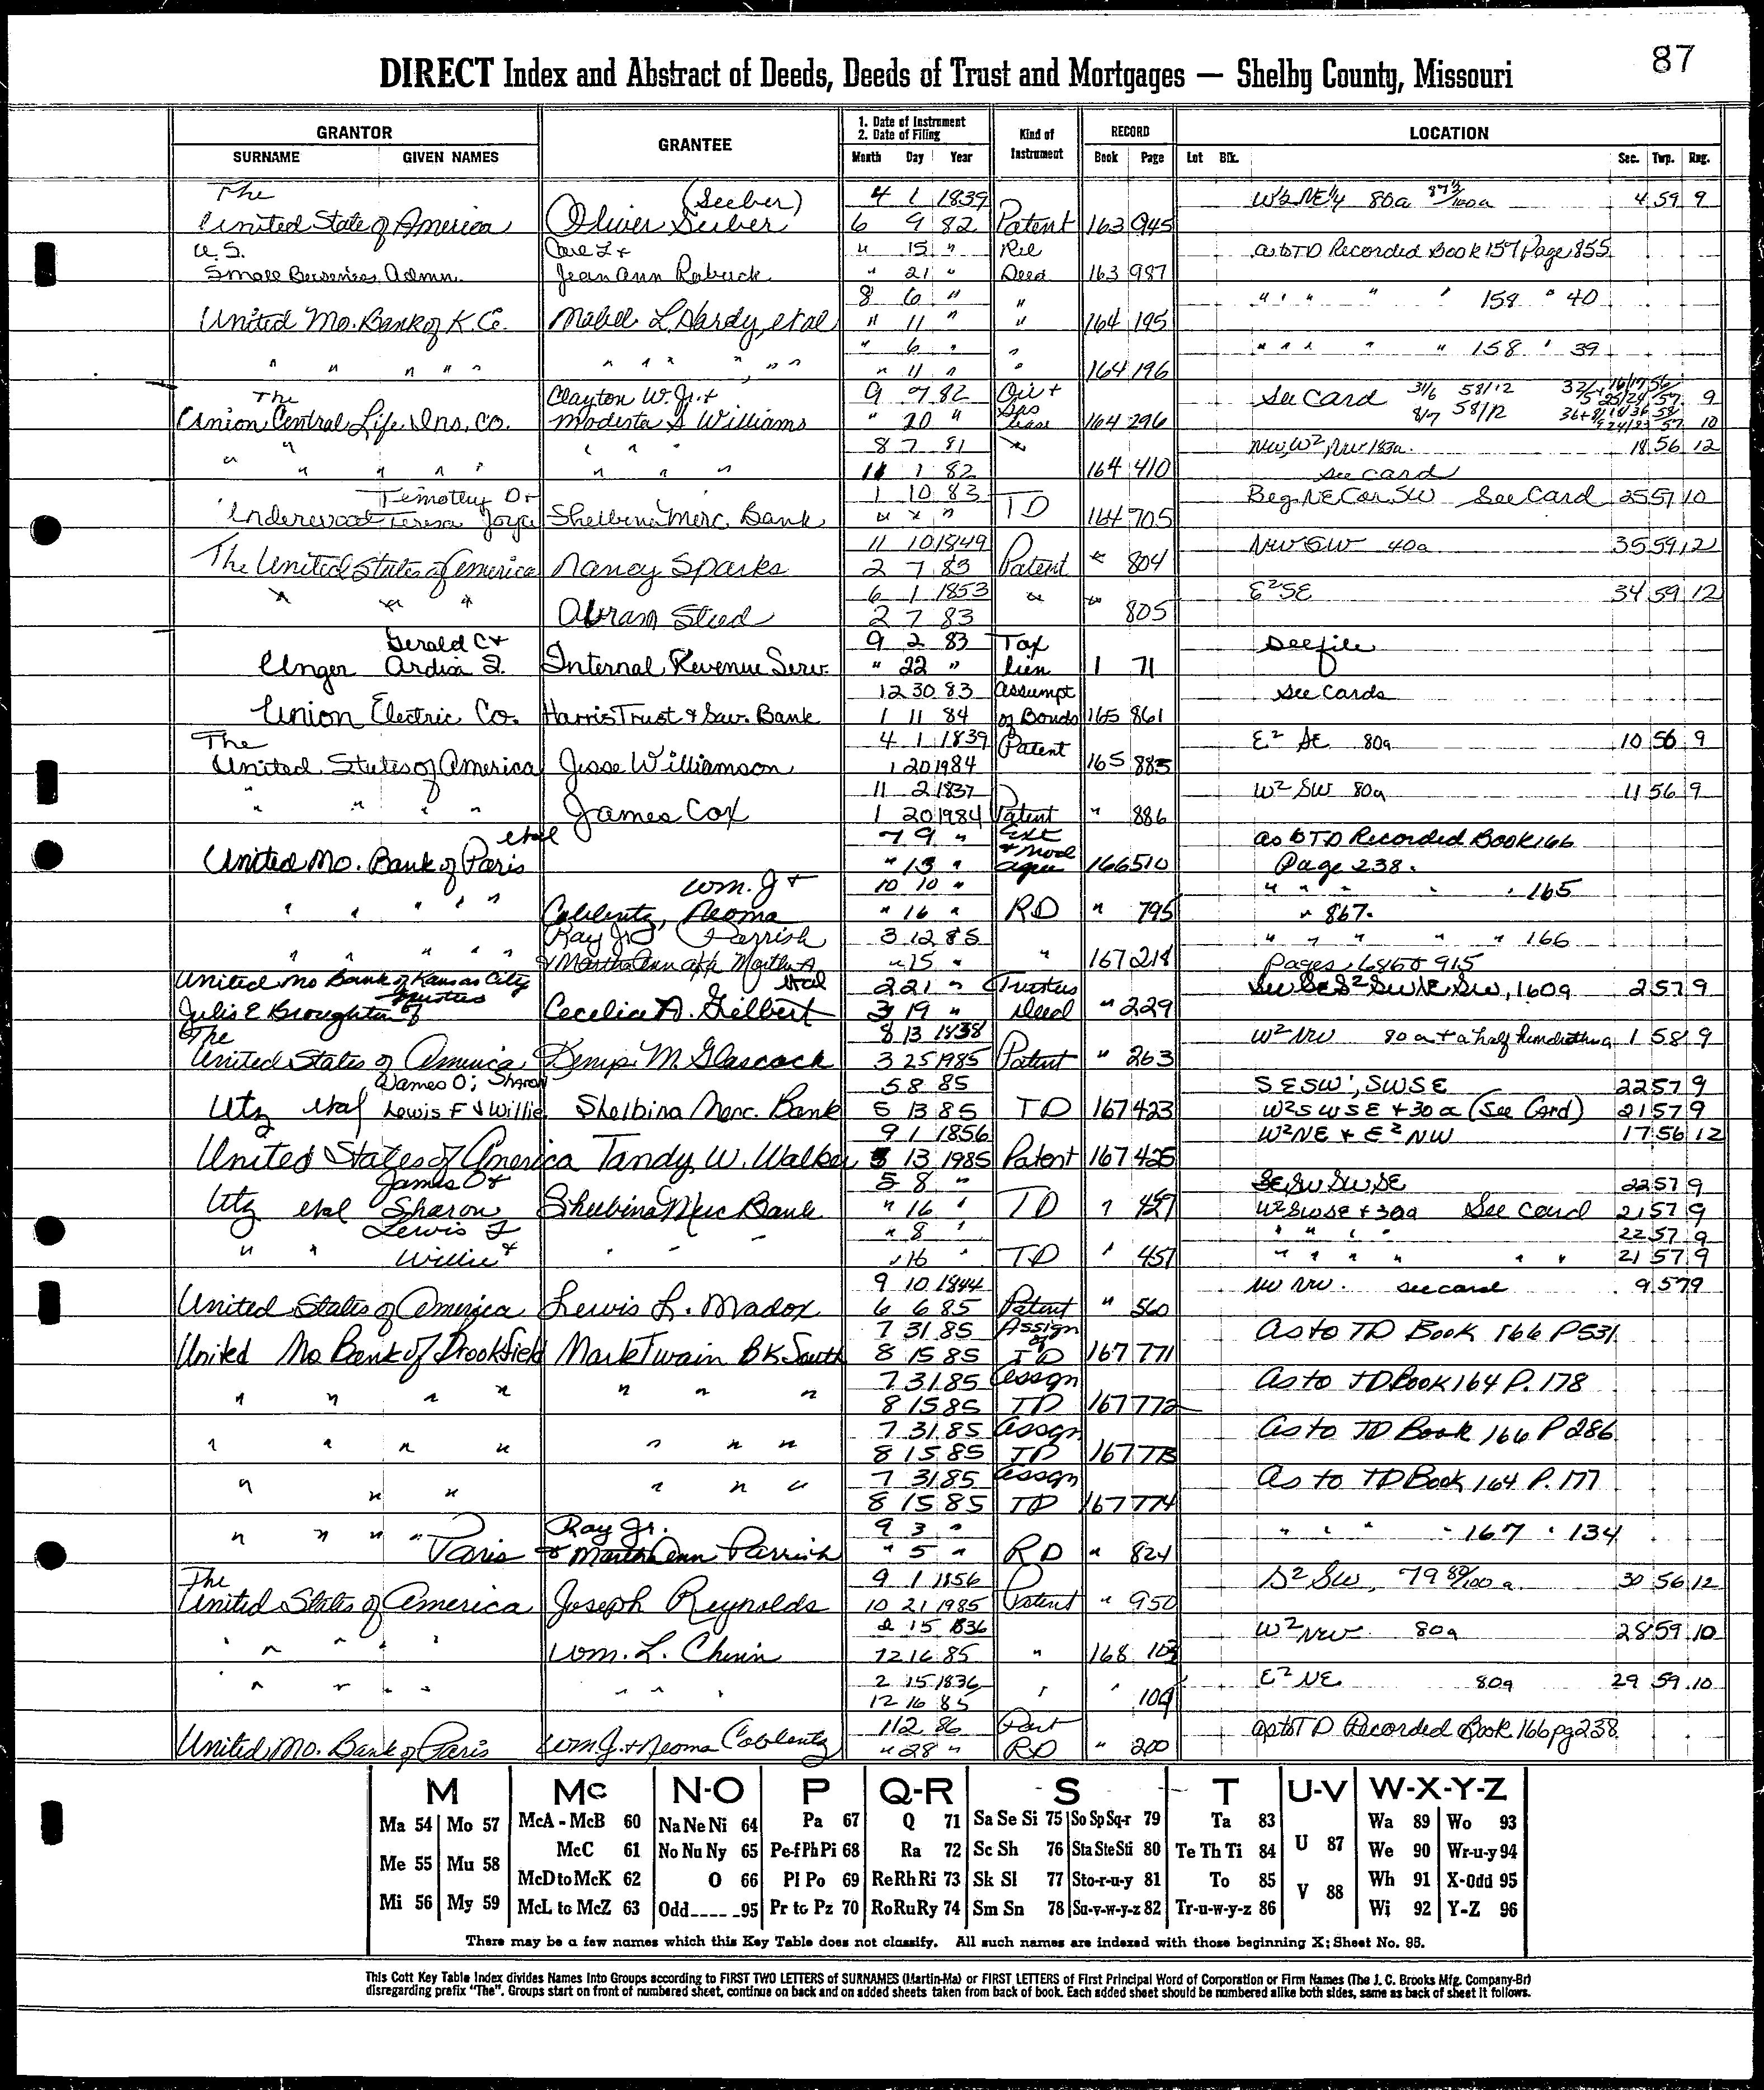 87
DIRECT Index and Abstract of Deeds, Deeds of Trust and Mortgages — Shelby County, Missouri
GRANTOR GRANTEE 1. Date of Instrument 2. Date of Filing Kind of Instrument RECORD LOCATION
SURNAME GIVEN NAMES Month Day Year Book Page Lot Blk. Sec. Twp. Rng.
The (Seeber) 4 1 1839 W½ NE¼ 80a 4 59 9
United State of America Oliver Seeber 6 9 82 Patent 163 945
U.S. Carl L + " 15 " Rel as to TD Recorded Book 157 Page 855
Small Business Admn. Jean Ann Robuck " 21 " Deed 163 987
8 6 " " " " " " " 158 " 40
United Mo. Bank of K.C. Mabel L. Hardy, et al " 11 " " 164 195
" 6 " " " " " " " 158 " 39
" " " " " " " " " " " " " 11 " " 164 196
The Clayton W. Jr. + 9 7 82 Oil + See Card 31/6 58/12 9
Union Central Life Ins. Co. Modesta G Williams " 20 " Gas Lease 164 296 8/7 58/12 10
8 7 81 " NW, W², NW 183a. 18 56 12
" " " " " " " " 11 1 82 164 410 see card
Timothy D + 1 10 83 TD Beg. NE Cor. SW See Card 25 57 10
Underwood Teresa Joyce Shelbina Merc. Bank " " " 164 705
11 10 1849 NW SW 40a 35 59 12
The United States of America Nancy Sparks 2 7 83 Patent " 804
" " " 6 1 1853 " " E² SE 34 59 12
Abram Steed 2 7 83 805
Gerald C + 9 2 83 Tax See file
Unger Ardia I. Internal Revenue Serv. " 22 " lien 1 71
12 30 83 Assumpt see cards
Union Electric Co. Harris Trust & Sav. Bank 1 11 84 of Bonds 165 861
The 4 1 1839 Patent E² SE 80a 10 56 9
United States of America Jesse Williamson 1 20 1984 165 885
11 2 1837 W² SW 80a 11 56 9
" " " " James Cox 1 20 1984 Patent " 886
et al 7 9 " Ext as to TD Recorded Book 166
United Mo. Bank of Paris " 13 " + Mod Agree 166 510 Page 238.
Wm. J + 10 10 " " " " " " 165
" " " " " Coblentz, Neoma " 16 " RD " 795 " 867.
Ray Jr. Parrish 3 12 85 " " " " " 166
" " " " " & Martha Ann aka Martha A " 15 " " 167 218 Pages 686 & 915
United Mo Bank of Kansas City et al 2 21 " Trustees 160a 2 57 9
Julis E Broughton Trustee of Cecelia A. Gilbert 3 19 " Deed " 229
The 8 13 1838 W² NW 80a + a half hundreths a 1 58 9
United States of America Kemp M. Glascock 3 25 1985 Patent " 263
James O; Sharon 5 8 85 SESW; SWSE 22 57 9
Utz et al Lewis F & Willie Shelbina Merc. Bank 5 13 85 TD 167 423 W² SWSE + 30a (See Card) 21 57 9
9 1 1856 W² NE + E² NW 17 56 12
United States of America Tandy W. Walker 5 13 1985 Patent 167 425
James O + 5 8 " SE SW SWSE 22 57 9
Utz et al Sharon Shelbina Merc Bank " 16 " TD " W² SWSE + 30a See Card 21 57 9
Lewis F " 8 " " " " " 22 57 9
" " Willie + " " " " 16 " TD " 451 " " " " " " 21 57 9
9 10 1844 NW NW. see card 9 57 9
United States of America Lewis L. Madox 6 6 85 Patent " 560
7 31 85 Assign As to TD Book 166 P 531
United Mo Bank of Brookfield Mark Twain BK South 8 15 85 of TD 167 771
7 31 85 Assgn As to TD Book 164 P. 178
" " " " " " " 8 15 85 TD 167 772
7 31 85 Assgn As to TD Book 166 P 286
" " " " " " " 8 15 85 TD 167 773
7 31 85 Assgn As to TD Book 164 P. 177
" " " " " " 8 15 85 TD 167 774
Ray Jr. 9 3 " " " " " 167 " 134
" " " " Paris & Martha Ann Parrish " 5 " RD " 824
The 9 1 1856 S² SW, 79 89/100 a 30 56 12
United States of America Joseph Reynolds 10 21 1985 Patent " 950
2 15 1836 W² NW 80a 28 59 10
" " " " " Wm. L. Chinn 12 16 85 " 168 108
2 15 1836 E² NE 80a 29 59 10
" " " " " " " 12 16 85 " " 109
1 12 86 Part as to TD Recorded Book 166 pg 238
United Mo. Bank of Paris Wm J. + Neoma Coblentz " 28 " RD " 200
M Mc N-O P Q-R S T U-V W-X-Y-Z
Ma 54 Mo 57 McA - McB 60 Na Ne Ni 64 Pa 67 Q 71 Sa Se Si 75 So Sp Sq-r 79 Ta 83 Wa 89 Wo 93
Me 55 Mu 58 McC 61 No Nu Ny 65 Pe-f Ph Pi 68 Ra 72 Sc Sh 76 Sta Ste Sti 80 Te Th Ti 84 U 87 We 90 Wr-u-y 94
McD to McK 62 O 66 Pl Po 69 Re Rh Ri 73 Sk Sl 77 Sto-r-u-y 81 To 85 V 88 Wh 91 X-Odd 95
Mi 56 My 59 McL to McZ 63 Odd---- -95 Pr to Pz 70 Ro Ru Ry 74 Sm Sn 78 Su-v-w-y-z 82 Tr-u-w-y-z 86 Wi 92 Y-Z 96
There may be a few names which this Key Table does not classify. All such names are indexed with those beginning X; Sheet No. 95.
This Cott Key Table Index divides Names Into Groups according to FIRST TWO LETTERS of SURNAMES (Martin-Ma) or FIRST LETTERS of First Principal Word of Corporation or Firm Names (The J. C. Brooks Mfg. Company-Br)
disregarding prefix "The". Groups start on front of numbered sheet, continue on back and on added sheets taken from back of book. Each added sheet should be numbered alike both sides, same as back of sheet it follows.